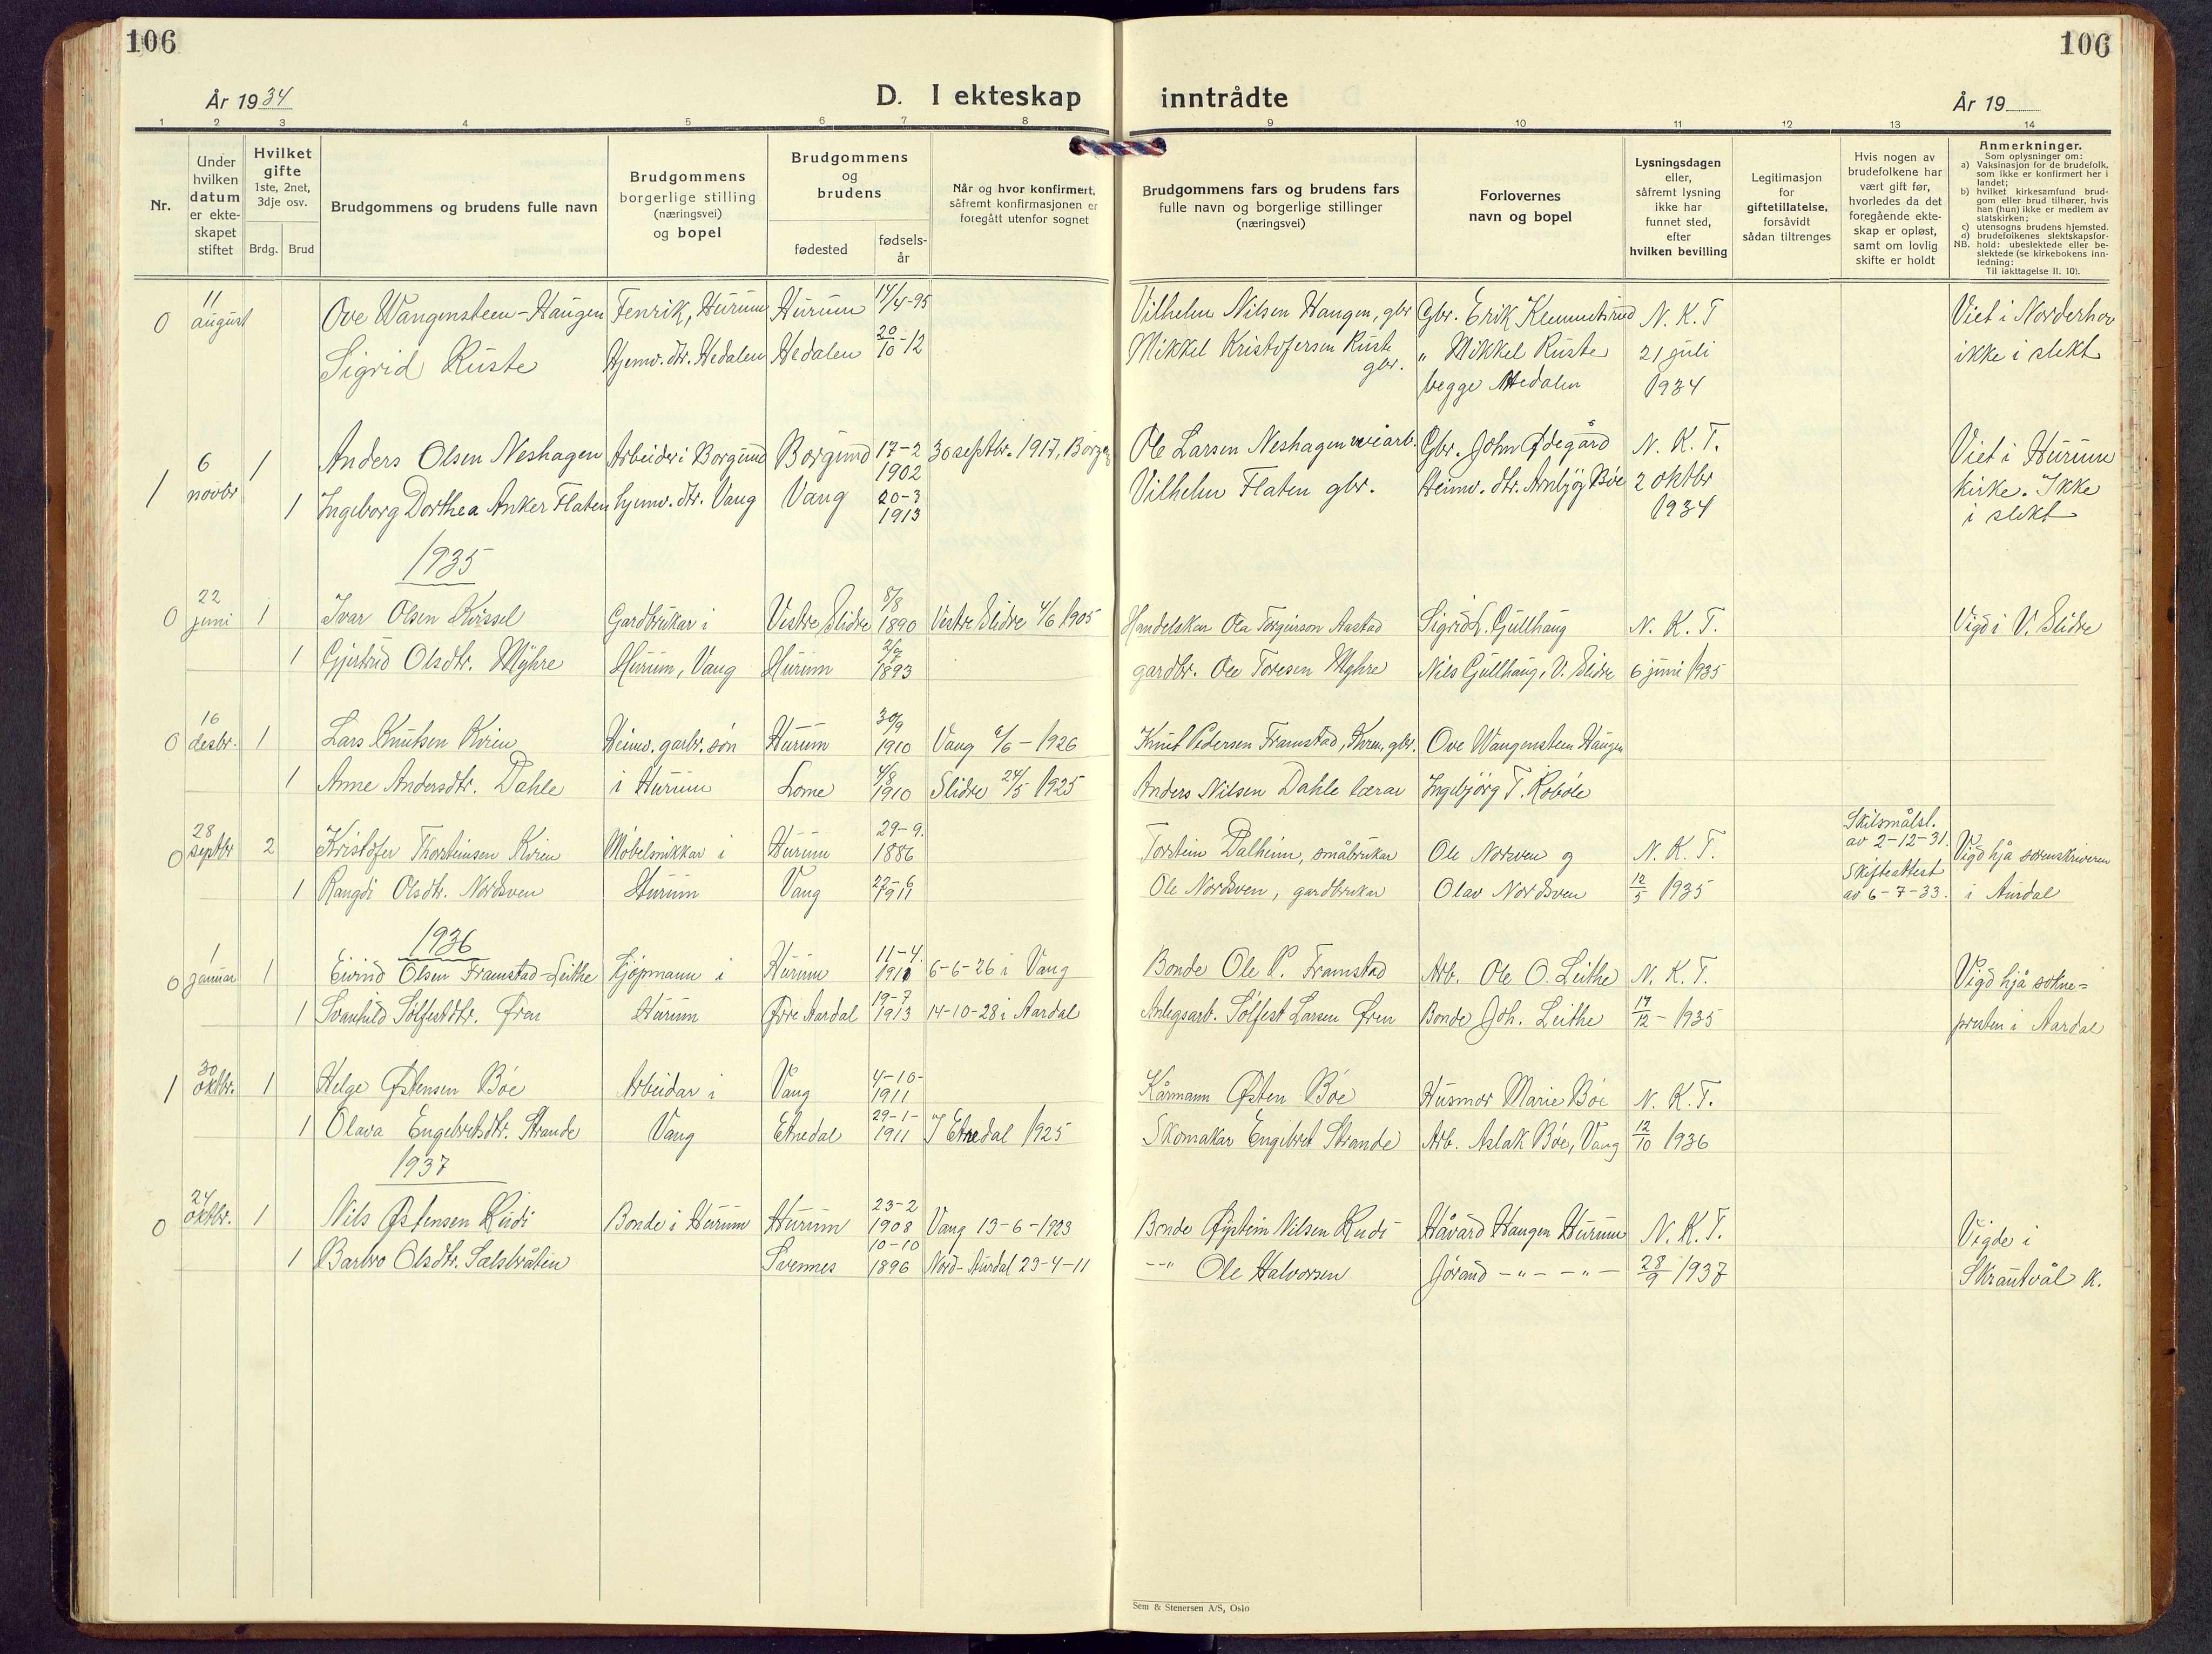 106
106
År 1934
D. I ekteskap inntrådte
År 19
1 2 3 4 5 6 7 8 9 10 11 12 13 14
Nr.
Under
hvilken
datum
er ekte-
skapet
stiftet
Hvilket
gifte
1ste, 2net,
3dje osv.
Brdg.
Brud
Brudgommens og brudens fulle navn
Brudgommens
borgerlige stilling
(næringsvei)
og bopel
Brudgommens
og
brudens
fødested
fødsels-
år
Når og hvor konfirmert,
såfremt konfirmasjonen er
foregått utenfor sognet
Brudgommens fars og brudens fars
fulle navn og borgerlige stillinger
(næringsvei)
Forlovernes
navn og bopel
Lysningsdagen
eller,
såfremt lysning
ikke har
funnet sted,
efter
hvilken bevilling
Legitimasjon
for
giftetillatelse,
forsåvidt
sådan tiltrenges
Hvis nogen av
brudefolkene har
vært gift før,
hvorledes da det
foregående ekte-
skap er opløst,
samt om lovlig
skifte er holdt
Anmerkninger.
Som oplysninger om:
a) Vaksinasjon for de brudefolk,
som ikke er konfirmert her i
landet;
b) hvilket kirkesamfund brud-
gom eller brud tilhører, hvis
han (hun) ikke er medlem av
statskirken;
c) utensogns brudens hjemsted.
d) brudefolkenes slektskapsfor-
NB. hold: ubeslektede eller be-
slektede (se kirkebokens inn-
ledning:
Til iakttagelse II. 10).
0 11 august Ove Wangensteen-Haugen Fenrik, Hurum Hurum 14/4-95 Vilhelm Nilsen Haugen, gbr Gbr. Erik Klemmetsrud N. K. T Viet i Norderhov
Sigrid Ruste Hjemv. dtr. Hedalen Hedalen 20/10-12 Mikkel Kristofersen Ruste gbr. " Mikkel Ruste 21 juli ikke i slekt
begge Hedalen 1934
1 6 novbr 1 Anders Olsen Neshagen Arbeider i Borgund Borgund 17-2 1902 30 septbr. 1917, Borgu Ole Larsen Neshagen veiarb. Gbr. John Ødegård N. K. T. Viet i Hurum
1 Ingeborg Dorthea Anker Flaten hjemv. dtr. Vang Vang 20-3 1913 Vilhelm Flaten gbr. Heimv. dtr. Arnbjøg Bøe 2 oktbr 1934 kirke. Ikke
i slekt
1935
0 22 juni 1 Ivar Olsen Kvissel Gardbrukar i Vestre Slidre 8/8 1890 Vestre Slidre 4/6 1905 Handelskar Ola Torgeirson Aastad Sigrid L. Gullhaug N. K. T. Vigd i V. Slidre
1 Gjertrud Olsdtr. Myhre Hurum, Vang Hurum 2/7 1893 gardbr. Ole Toresen Myhre Nils Gullhaug, V. Slidre 6 juni 1935
0 16 desbr. 1 Lars Knutsen Kvien Heimv. garbr. søn Hurum 30/9 1910 Vang 6/6-1926 Knut Pedersen Framstad, Kvien, gbr. Ove Wangensteen Haugen
1 Anne Andersdtr. Dahle i Hurum Lome 4/8 1910 Slidre 24/5 1925 Anders Nilsen Dahle lærar Ingebjörg T. Robøle
0 28 septbr 2 Kristofer Thorsteinsen Kvien Møbelsnikkar i Hurum 29-9. 1886 Torstein Dalheim, småbrukar Ole Norsven og N. K. T. Skilsmålsl. av 2-12-31. Vigd hjå sorenskriveren
1 Rangdi Olsdtr. Nordsven Hurum Vang 22-6 1911 Ole Nordsven, gardbrukar Olav Nordsven 12/5 1935 Skifteattest av 6-7-33. i Aurdal
1936
0 1 januar 1 Eivind Olsen Framstad-Leithe Kjøpmann i Hurum 11-4. 1911 6-6-26 i Vang Bonde Ole P. Framstad Arb. Ole O. Leithe N. K. T. Vigd hjå sokne-
1 Svanhild Sølfestdtr. Øren Hurum Øvre Aardal 19-7 1913 14-10-28 i Aardal Anlegsarb. Sølfest Larsen Øren Bonde Joh. Leithe 17/12-1935 presten i Aardal
1 30 oktbr. 1 Helge Østensen Bøe Arbeidar i Vang 4-10- 1911 Kårmann Østen Bøe Husmor Marie Bøe N. K. T.
1 Olava Engebretsdtr. Strande Vang Etnedal 29-1- 1911 I Etnedal 1925 Skomakar Engebret Strande Arb. Aslak Bøe, Vang 12/10 1936
1937
0 24 oktbr. 1 Nils Østensen Rudi Bonde i Hurum Hurum 23-2 1908 Vang 13-6-1923 Bonde Øystein Nilsen Rudi Håvard Haugen Hurum N. K. T. Vigde i
1 Barbro Olsdtr. Sælsbråten Svennes 10-10 1896 Nord-Aurdal 23-4-11 -"- Ole Halvorsen Jørand -"- -"- 28/9 1937 Skrautvål K.
Sem & Stenersen A/S, Oslo